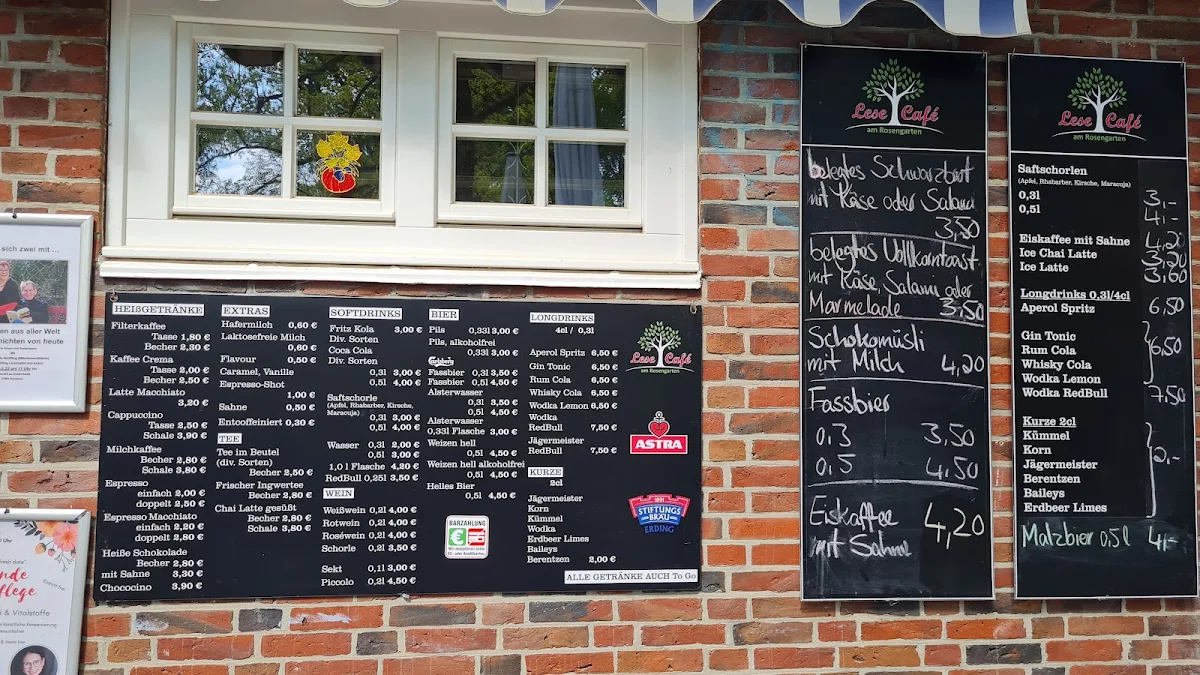 sich zwei mit ...
en aus aller Welt
hichten von heute
Uhr
nde
flege
& Vitalstoffe
HEIßGETRÄNKE
Filterkaffee
Tasse 1,80 €
Becher 2,30 €
Kaffee Crema
Tasse 2,00 €
Becher 2,50 €
Latte Macchiato
3,20 €
Cappuccino
Tasse 2,50 €
Schale 3,90 €
Milchkaffee
Becher 2,80 €
Schale 3,80 €
Espresso
einfach 2,00 €
doppelt 2,50 €
Espresso Macchiato
einfach 2,20 €
doppelt 2,80 €
Heiße Schokolade
Becher 2,80 €
mit Sahne 3,30 €
Chococino 3,90 €
EXTRAS
Hafermilch 0,60 €
Laktosefreie Milch
0,60 €
Flavour 0,50 €
Caramel, Vanille
Espresso-Shot
1,00 €
Sahne 0,50 €
Entcoffeiniert 0,30 €
TEE
Tee im Beutel
(div. Sorten)
Becher 2,50 €
Frischer Ingwertee
Becher 2,80 €
Chai Latte gesüßt
Becher 2,80 €
Schale 3,80 €
SOFTDRINKS
Fritz Kola 3,00 €
Div. Sorten
Coca Cola
Div. Sorten
0,3l 3,00 €
0,5l 4,00 €
Saftschorle
(Apfel, Rhabarber, Kirsche,
Maracuja)
0,3l 3,00 €
0,5l 4,00 €
Wasser 0,3l 2,00 €
0,5l 3,00 €
1,0 l Flasche 4,20 €
RedBull 0,25l 3,50 €
WEIN
Weißwein 0,2l 4,00 €
Rotwein 0,2l 4,00 €
Roséwein 0,2l 4,00 €
Schorle 0,2l 3,50 €
Sekt 0,1l 3,00 €
Piccolo 0,2l 4,50 €
BIER
Pils 0,33l 3,00 €
Pils, alkoholfrei
0,33l 3,00 €
Carlsberg
Fassbier 0,3l 3,50 €
Fassbier 0,5l 4,50 €
Alsterwasser
0,3l 3,50 €
0,5l 4,50 €
Alsterwasser
0,33l Flasche 3,00 €
Weizen hell
0,5l 4,50 €
Weizen hell alkoholfrei
0,5l 4,50 €
Helles Bier
0,5l 4,50 €
BARZAHLUNG
LONGDRINKS
4cl / 0,3l
Aperol Spritz 6,50 €
Gin Tonic 6,50 €
Rum Cola 6,50 €
Whisky Cola 6,50 €
Wodka Lemon 6,50 €
Wodka
RedBull 7,50 €
Jägermeister
RedBull 7,50 €
KURZE
2cl
Jägermeister
Korn
Kümmel
Wodka
Erdbeer Limes
Baileys
Berentzen 2,00 €
Lese Café
am Rosengarten
ASTRA
1691
STIFTUNGS
BRÄU
ERDING
ALLE GETRÄNKE AUCH To Go
Lese Café
am Rosengarten
belegtes Schwarzbrot
mit Käse oder Salami
3,50
belegtes Vollkorntoast
mit Käse, Salami oder
Marmelade 3,50
Schokomüsli
mit Milch 4,20
Fassbier
0,3 3,50
0,5 4,50
Eiskaffee
mit Sahne 4,20
Lese Café
am Rosengarten
Saftschorlen
(Apfel, Rhabarber, Kirsche, Maracuja)
0,3l 3,-
0,5l 4,-
Eiskaffee mit Sahne 4,20
Ice Chai Latte 3,20
Ice Latte 3,60
Longdrinks 0,3l/4cl
Aperol Spritz 6,50
Gin Tonic
Rum Cola 6,50
Whisky Cola
Wodka Lemon
Wodka RedBull 7,50
Kurze 2cl
Kümmel
Korn 2,-
Jägermeister
Berentzen
Baileys
Erdbeer Limes
Malzbier 0,5l 4,-